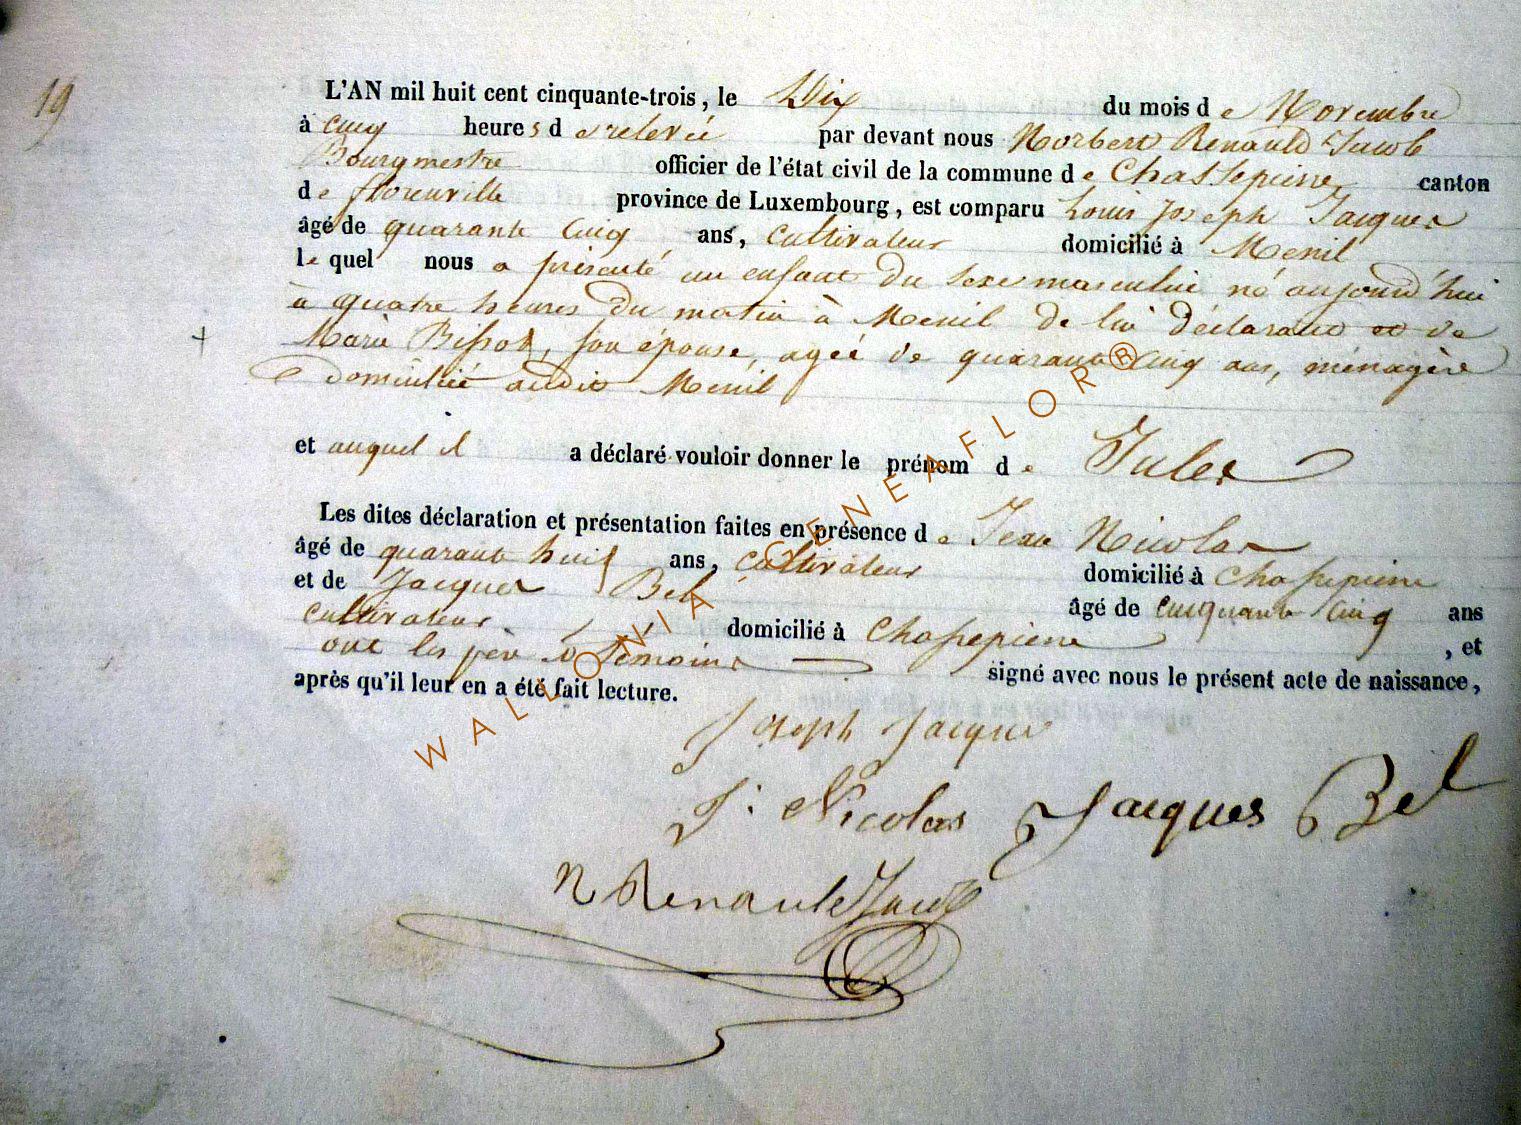 19
L'AN mil huit cent cinquante-trois, le Dix du mois de Novembre
à cinq heures de relevée par devant nous Norbert Renauld Jacob
Bourgmestre officier de l'état civil de la commune de Chassepierre canton
de florenville province de Luxembourg, est comparu Louis Joseph Jacques
âgé de quarante cinq ans, cultivateur domicilié à Menil
lequel nous a présenté un enfant du sexe masculin né aujourd'hui
à quatre heures du matin à Menil de lui déclarant et de
+ Marie Bissot, son épouse, agée de quarante cinq ans, ménagère
domiciliée audit Menil
et auquel il a déclaré vouloir donner le prénom de Jules
Les dites déclaration et présentation faites en présence de Jean Nicolas
âgé de quarante huit ans, cultivateur domicilié à Chassepierre
et de Jacques Bel âgé de cinquante cinq ans
cultivateur domicilié à Chassepierre, et
ont les père et témoins signé avec nous le présent acte de naissance,
après qu'il leur en a été fait lecture.
Joseph Jacques
J. Nicolas Jacques Bel
N Renauld Jacob
WALLONIA GENEAFLOR®